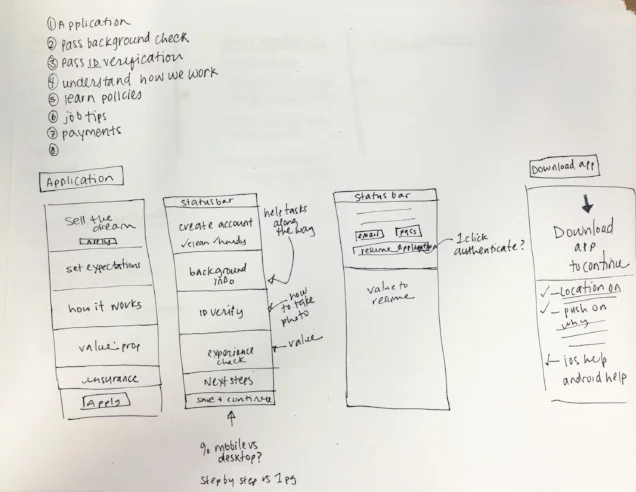 ① Application
② Pass background check
③ Pass ID verification
④ understand how we work
⑤ learn policies
⑥ job tips
⑦ payments
⑧
Application
Sell the
dream
Apply
set expectations
how it works
value prop
insurance
Apply
status bar
create account
✓clean ✓handy
background
info
ID verify
experience
check
Next steps
save & continue
help tasks
along
the way
how
to take
photo
value
% mobile vs
desktop?
Step by step vs 1 pg
status bar
email
pass
resume application
value to
resume
1 click
authenticate?
Download app
Download
app
to continue
✓ Location on
✓ push on
why
ios help
android help